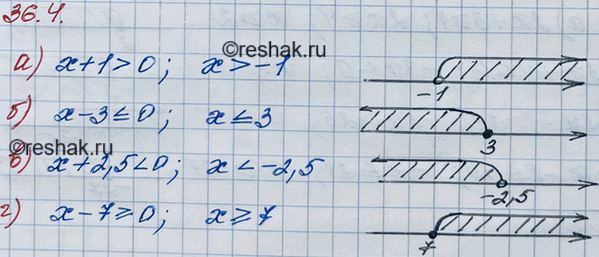 36.4.
©reshak.ru
а) x+1>0; x>-1
-1
б) x-3≤0; x≤3
3
©reshak.ru
в) x+2,5<0; x<-2,5
-2,5
г) x-7≥0; x≥7
7